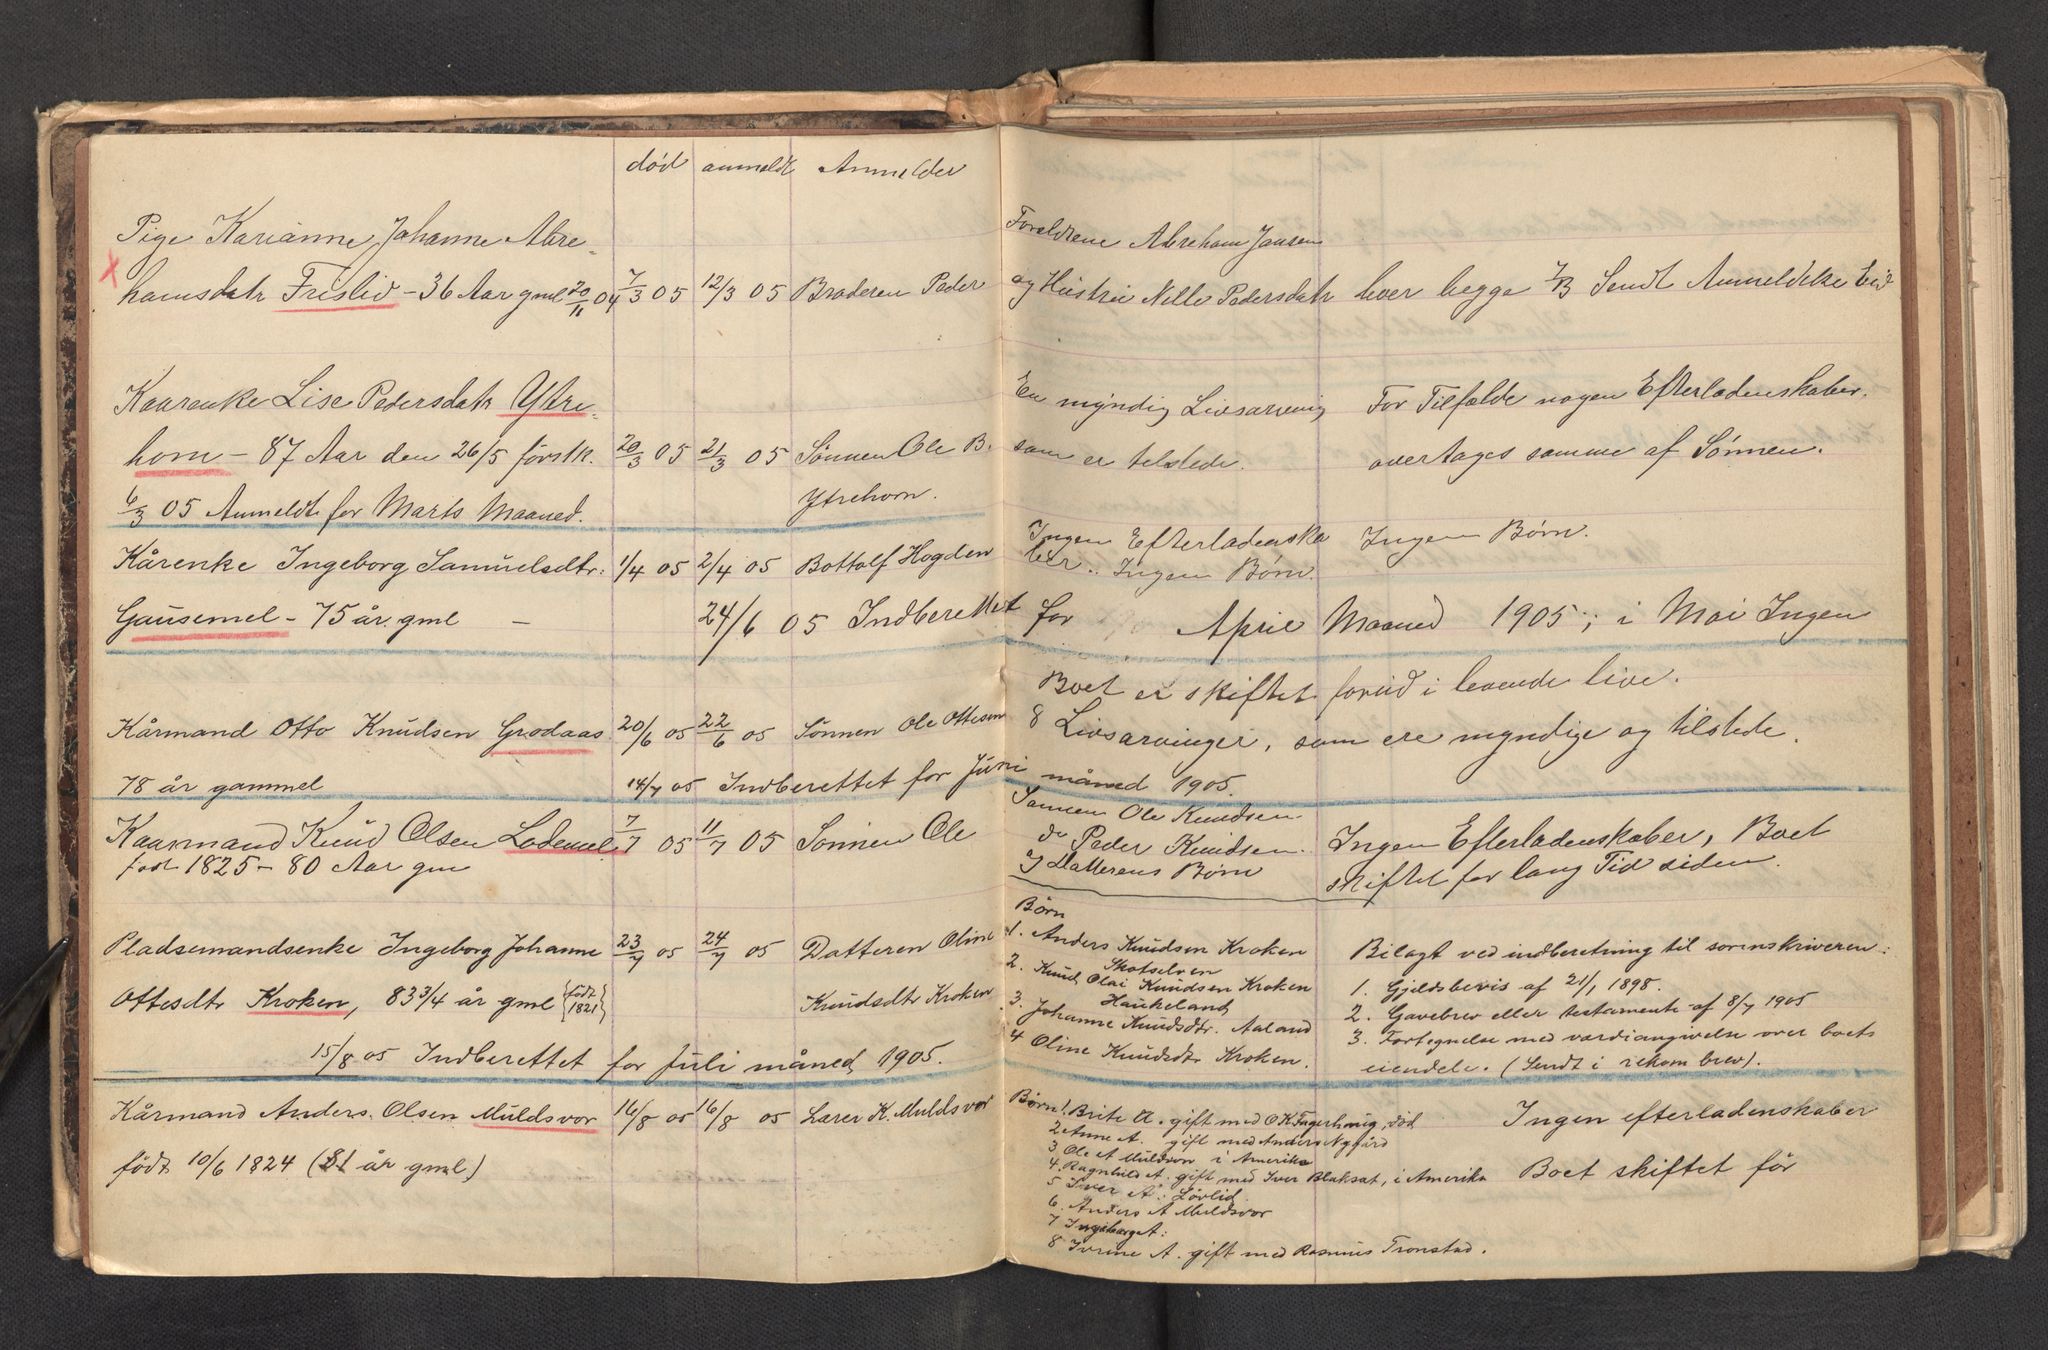 død anmeldt Anmelder
Pige Karianne Johanne Abre-
hamsdatr Frislid - 36 Aar gml 20/11 04 7/3 05 12/3 05 Broderen Peder
Kaarenke Lise Pedersdatr Ytre-
horn - 87 Aar den 26/5 førstk. 20/3 05 21/3 05 Sønnen Ole B.
6/3 05 Anmeldt for Marts Maaned. Ytrehorn.
Kårenke Ingeborg Samuelsdtr. 1/4 05 2/4 05 Bottolf Hogden
Gausemel - 75 år gml - 24/6 05 Indberettet
Kårmand Otto Knudsen Grodaas 20/6 05 22/6 05 Sønnen Ole Ottesen
78 år gammel 14/7 05 Indberettet for Juni
Kaarmand Knud Olsen Lødemel 7/7 05 11/7 05 Sønnen Ole
født 1825 - 80 Aar gm
Pladsemandsenke Ingeborg Johanne 23/7 05 24/7 05 Datteren Oline
Ottesdtr Kroken, 83 3/4 år gml {født 1821} Knudsdtr Kroken
15/8 05 Indberettet for Juli måned 1905.
Kårmand Anders Olsen Muldsvor 16/8 05 16/8 05 Lærer K. Muldsvor
født 10/6 1824 (81 år gml)
Forældrene Abreham Jansen
og Hustru Nille Pedersdatr lever begge Sendt Anmeldelse Eid
En myndig Livsarving For Tilfælde nogen Efterladenskaber.
som er tilstede. overtages samme af Sønnen.
Ingen Efterladenska Ingen Børn.
ber.. Ingen Børn.
for April Maaned 1905; i Mai Ingen
Boet er skiftet forud i levende live.
8 Livsarvinger, som ere myndige og tilstede.
måned 1905.
Sønnen Ole Knudsen
do Peder Knudsen. Ingen Efterladenskaber, Boet
Datterens Børn skiftet for lang Tid siden.
Børn
1. Anders Knudsen Kroken Bilagt ved indberetning til sorenskriveren:
Skotselven
2. Knud Olai Knudsen Kroken 1. Gjeldsbevis af 21/1 1898.
Haukeland
3. Johanne Knudsdtr. Aaland 2. Gavebrev eller testamente af 8/7 1905
4 Oline Knudsdtr Kroken. 3. Fortegnelse med værdiangivelse over boets
eiendele. (Sendt i rekom brev).
Børn 1. Brite A. gift med O K Fagerhaug, død Ingen efterladenskaber
2 Anne A. gift med Anders Nygård
3 Ole A Muldsvor i Amerika
4. Ragnhild A. gift med Iver Blaksat, i Amerika Boet skiftet før
5 Iver A. Løvlid.
6. Anders A Muldsvor
7 Ingeborg A.
8 Ivrine A. gift med Rasmus Tronstad.